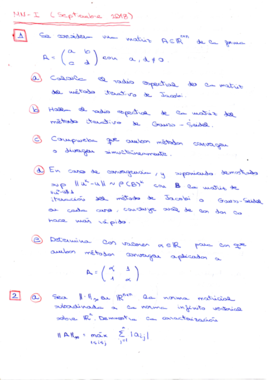 MN-I (Septiembre 2018)
1 Se considera una matriz A∈ℝ²ˣ² de la forma
A = (a b; c d) con a, d ≠ 0.
a) Calcula el radio espectral de la matriz
del método iterativo de Jacobi.
b) Halla el radio espectral de la matriz del
método iterativo de Gauss-Seidel.
c) Comprueba que ambos métodos convergen
o divergen simultáneamente.
d) En caso de convergencia, y suponiendo
sup ‖ - u‖ ~ ρ(B) con B la matriz de
iteración del método de Jacobi o Gauss-Seidel
en cada caso, cuál de los dos lo
hace más rápido.
e) Determina los valores α∈ℝ para los que
ambos métodos convergen aplicados a
A = (α 1; 1 α)
2 a) Sea ‖·‖∞ de ℝⁿˣⁿ la norma matricial
subordinada a la norma infinito vectorial
sobre ℝⁿ. Demuestra la caracterización
‖A‖∞ = máx 1≤i≤n Σ j=1 n |aij|